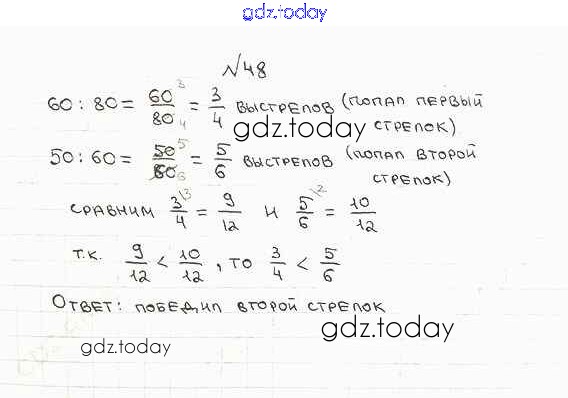 gdz.today
№48
60 : 80 = 60/80 = 3/4 выстрелов (попал первый стрелок)
gdz.today
50 : 60 = 50/60 = 5/6 выстрелов (попал второй стрелок)
сравним 3/4 = 9/12 и 5/6 = 10/12
т.к. 9/12 < 10/12, то 3/4 < 5/6
Ответ: победил второй стрелок
gdz.today
gdz.today